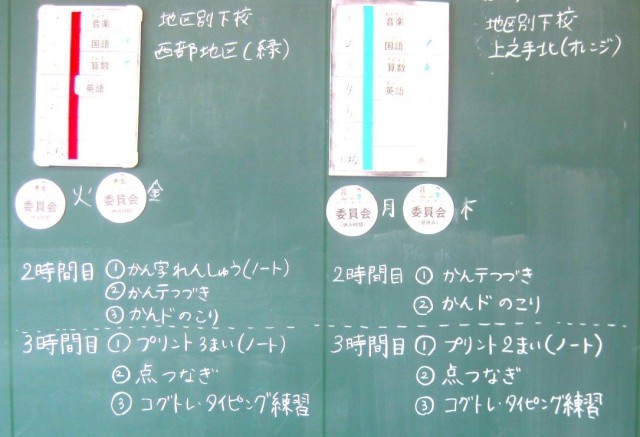 音楽
国語
算数
英語
地区別下校
西部地区(緑)
委員会
火
委員会
金
2時間目 ①かん字れんしゅう(ノート)
②かんテつづき
③かんドのこり
3時間目 ①プリント3まい(ノート)
②点つなぎ
③コグトレ・タイピング練習
音楽
国語
算数
英語
地区別下校
上之手北(オレンジ)
委員会
月
委員会
木
2時間目 ①かんテつづき
②かんドのこり
3時間目 ①プリント2まい(ノート)
②点つなぎ
③コグトレ・タイピング練習